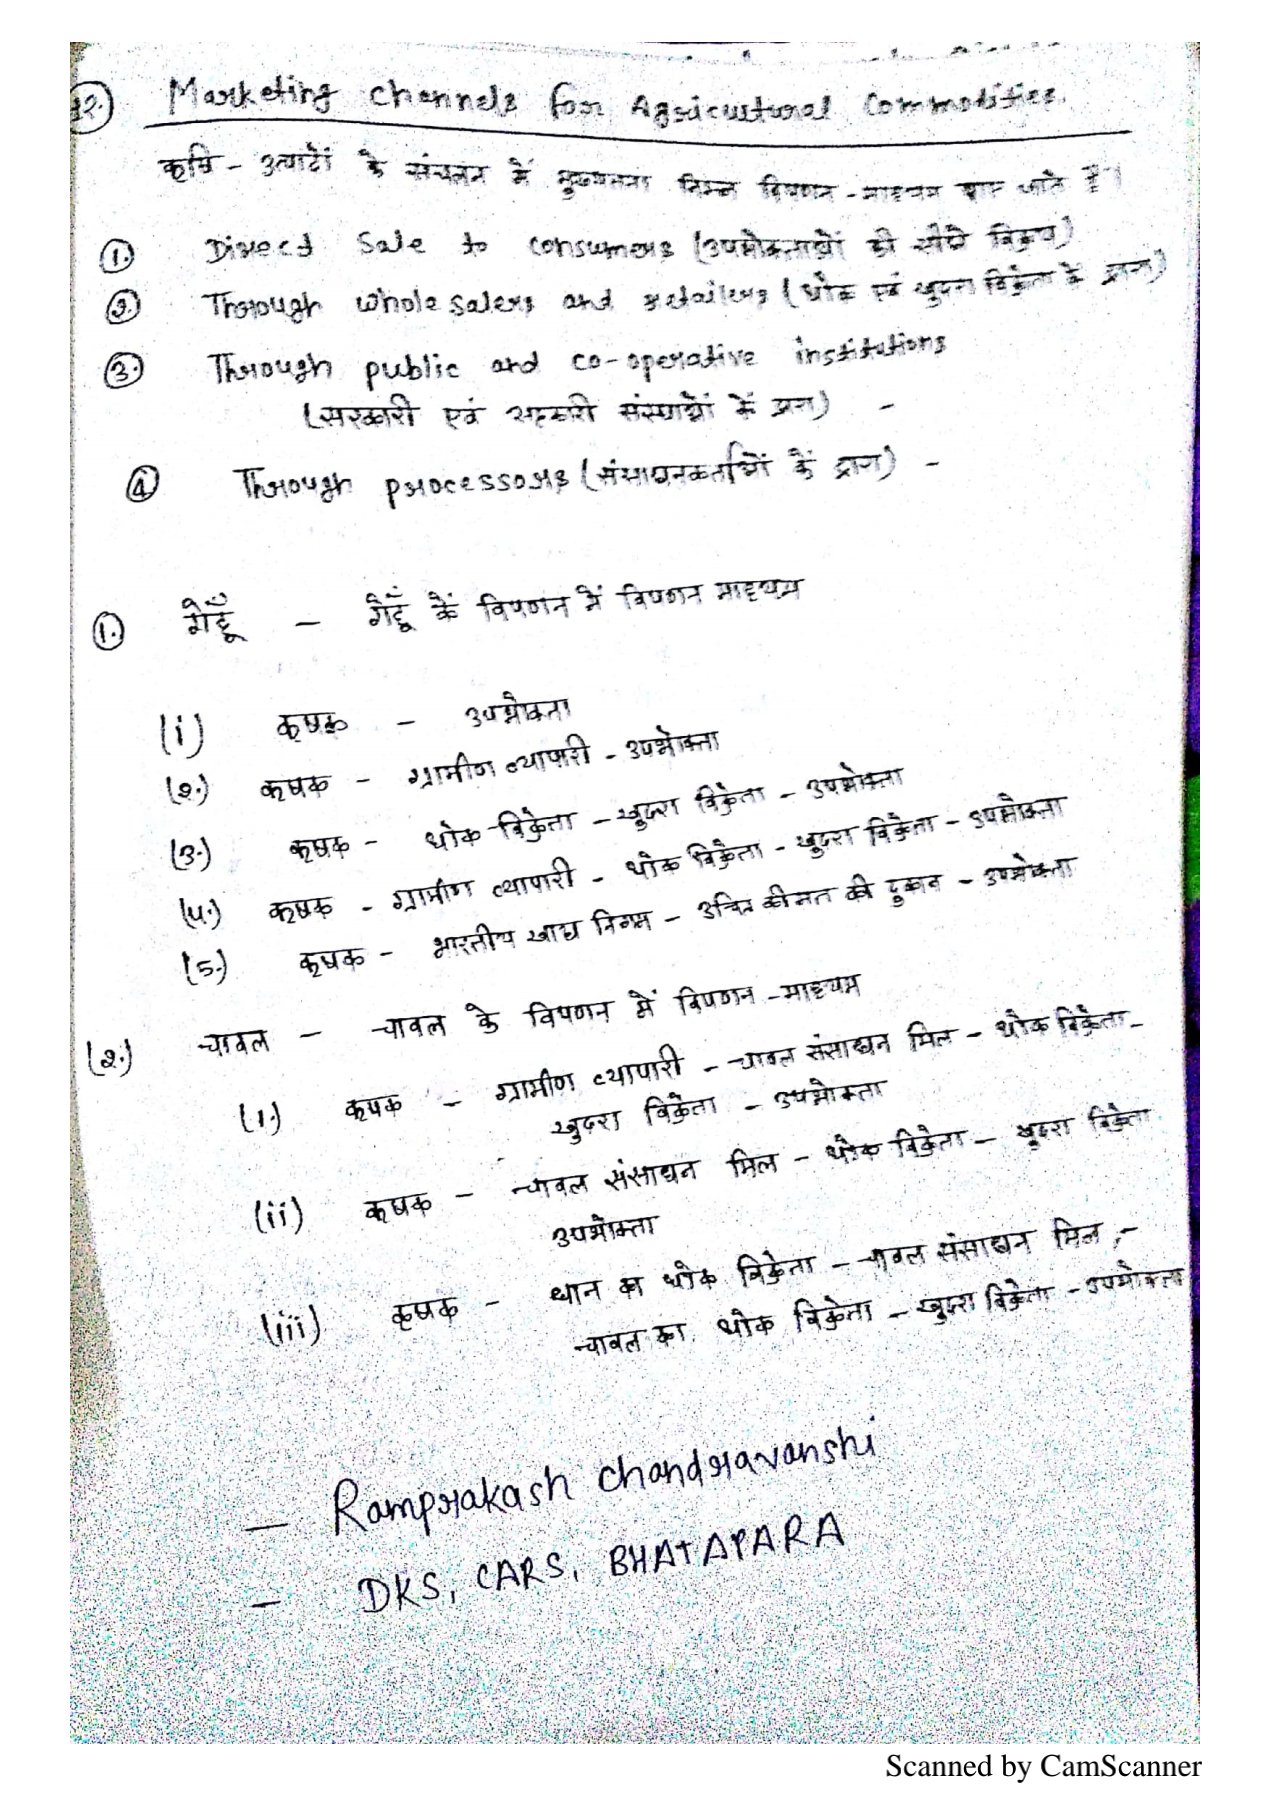 12. Marketing channels for Agricultural Commodities.
कृषि - उत्पादों के संचलन में मुख्यतया निम्न विपणन - माध्यम पाए जाते हैं।
1. Direct Sale to consumers (उपभोक्ताओं को सीधे विक्रय)
2. Through wholesalers and retailers (थोक एवं खुदरा विक्रेता के द्वारा)
3. Through public and co-operative institutions
(सरकारी एवं सहकारी संस्थाओं के द्वारा) -
4 Through processors (संसाधनकर्ताओं कें द्वारा) -
1. गेहूँ - गेहूँ कें विपणन में विपणन माध्यम
(i) कृषक - उपभोक्ता
(2.) कृषक - ग्रामीण व्यापारी - उपभोक्ता
(3.) कृषक - थोक विक्रेता - खुदरा विक्रेता - उपभोक्ता
(4.) कृषक - ग्रामीण व्यापारी - थोक विक्रेता - खुदरा विक्रेता - उपभोक्ता
(5.) कृषक - भारतीय खाद्य निगम - उचित कीमत की दुकान - उपभोक्ता
(2.) चावल - चावल के विपणन में विपणन - माध्यम
(1.) कृषक - ग्रामीण व्यापारी - चावल संसाधन मिल - थोक विक्रेता -
खुदरा विक्रेता - उपभोक्ता
(ii) कृषक - चावल संसाधन मिल - थोक विक्रेता - खुदरा विक्रेता
उपभोक्ता
(iii) कृषक - धान का थोक विक्रेता - चावल संसाधन मिल, -
चावल का थोक विक्रेता - खुदरा विक्रेता - उपभोक्ता
- Ramprakash Chandravanshi
- DKS, CARS, BHATAPARA
Scanned by CamScanner